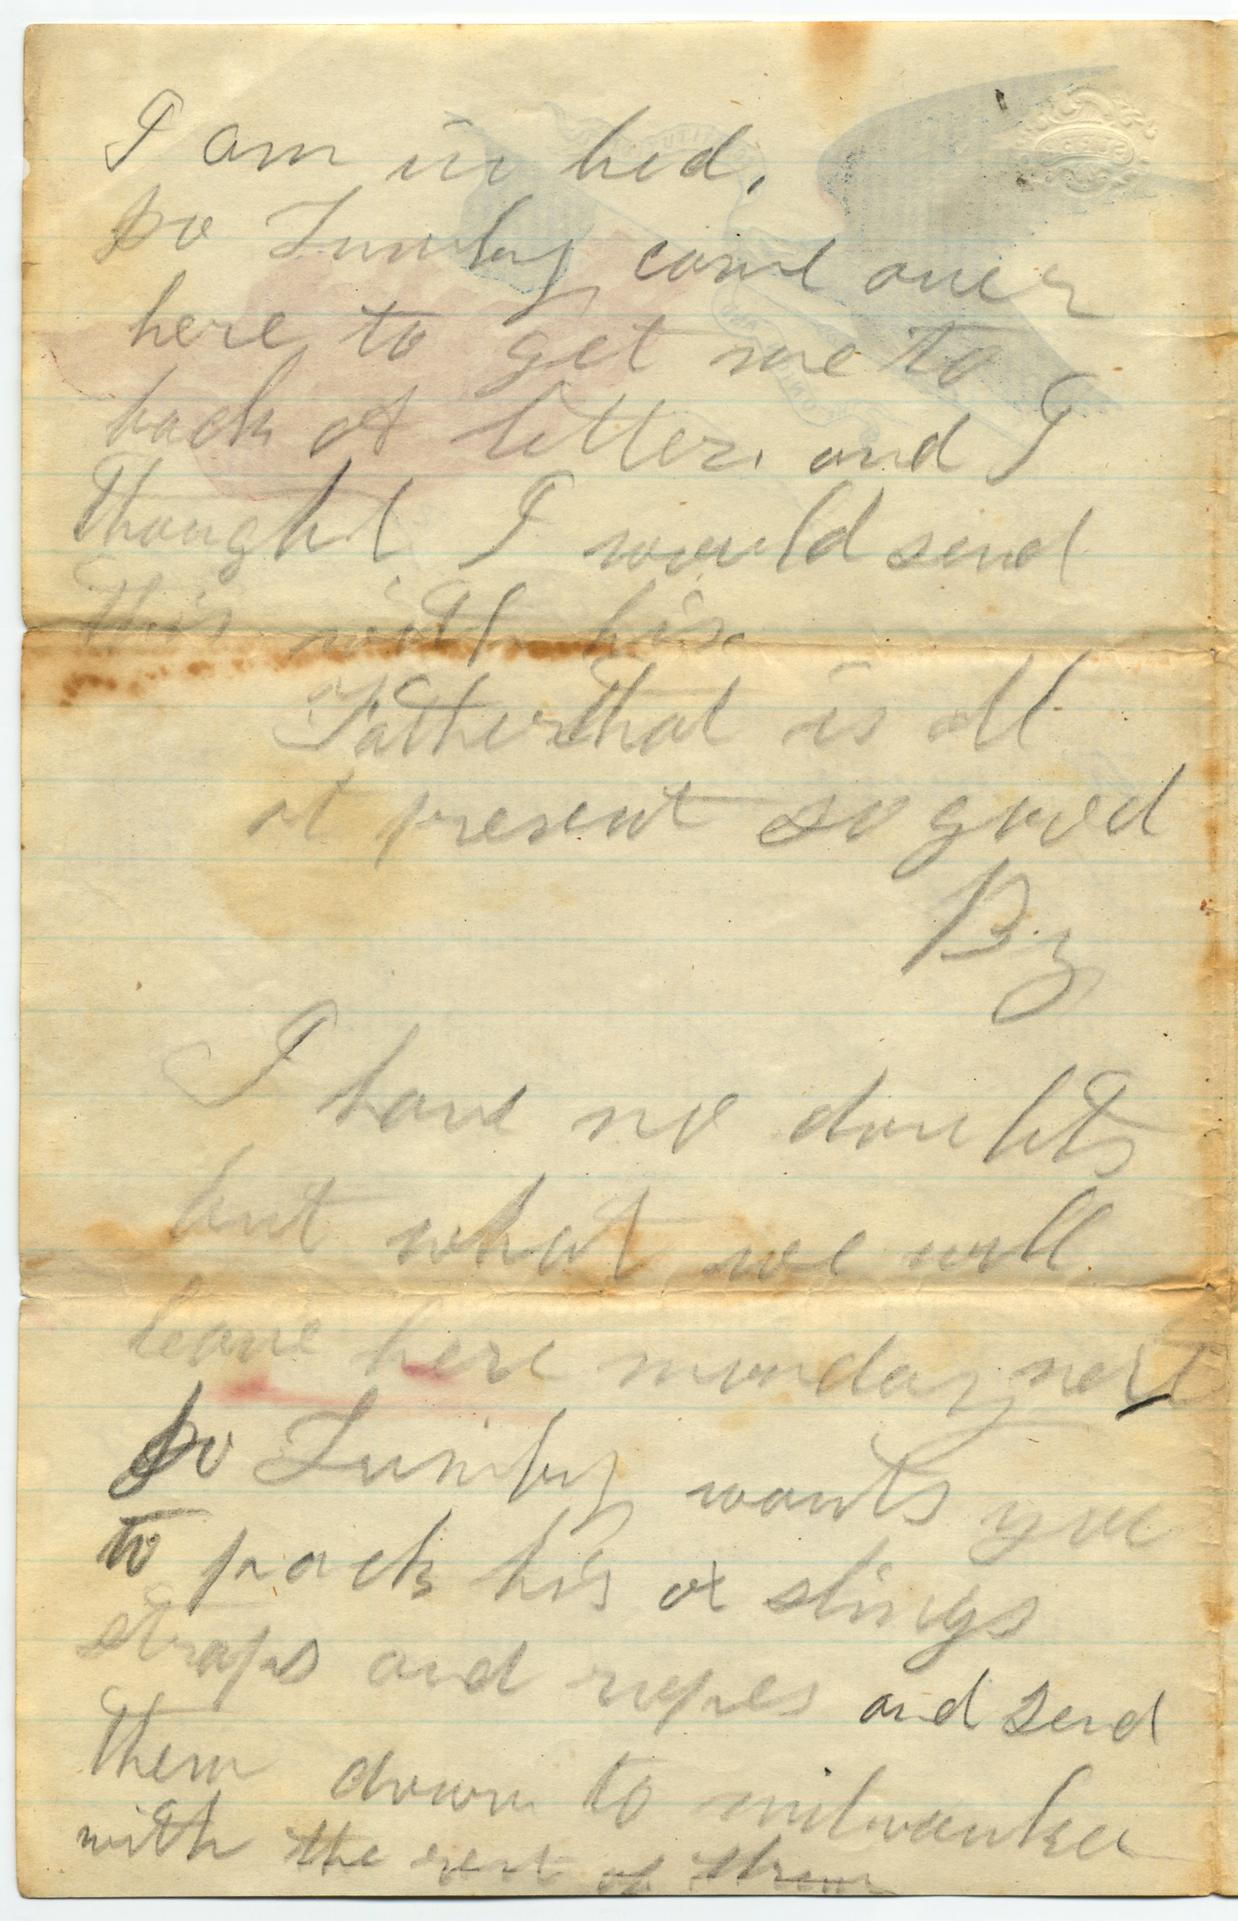 I am in bed,
Do Lumby come over
here to get me to
back A letter. and I
thought I would send
this with his.
Father that is all
at present so good
By
I have no doubts
but what we will
leave here monday next
Do Lumby wants you
to pack his slings
straps and ropes and send
them down to milwaukee
with the rest of them